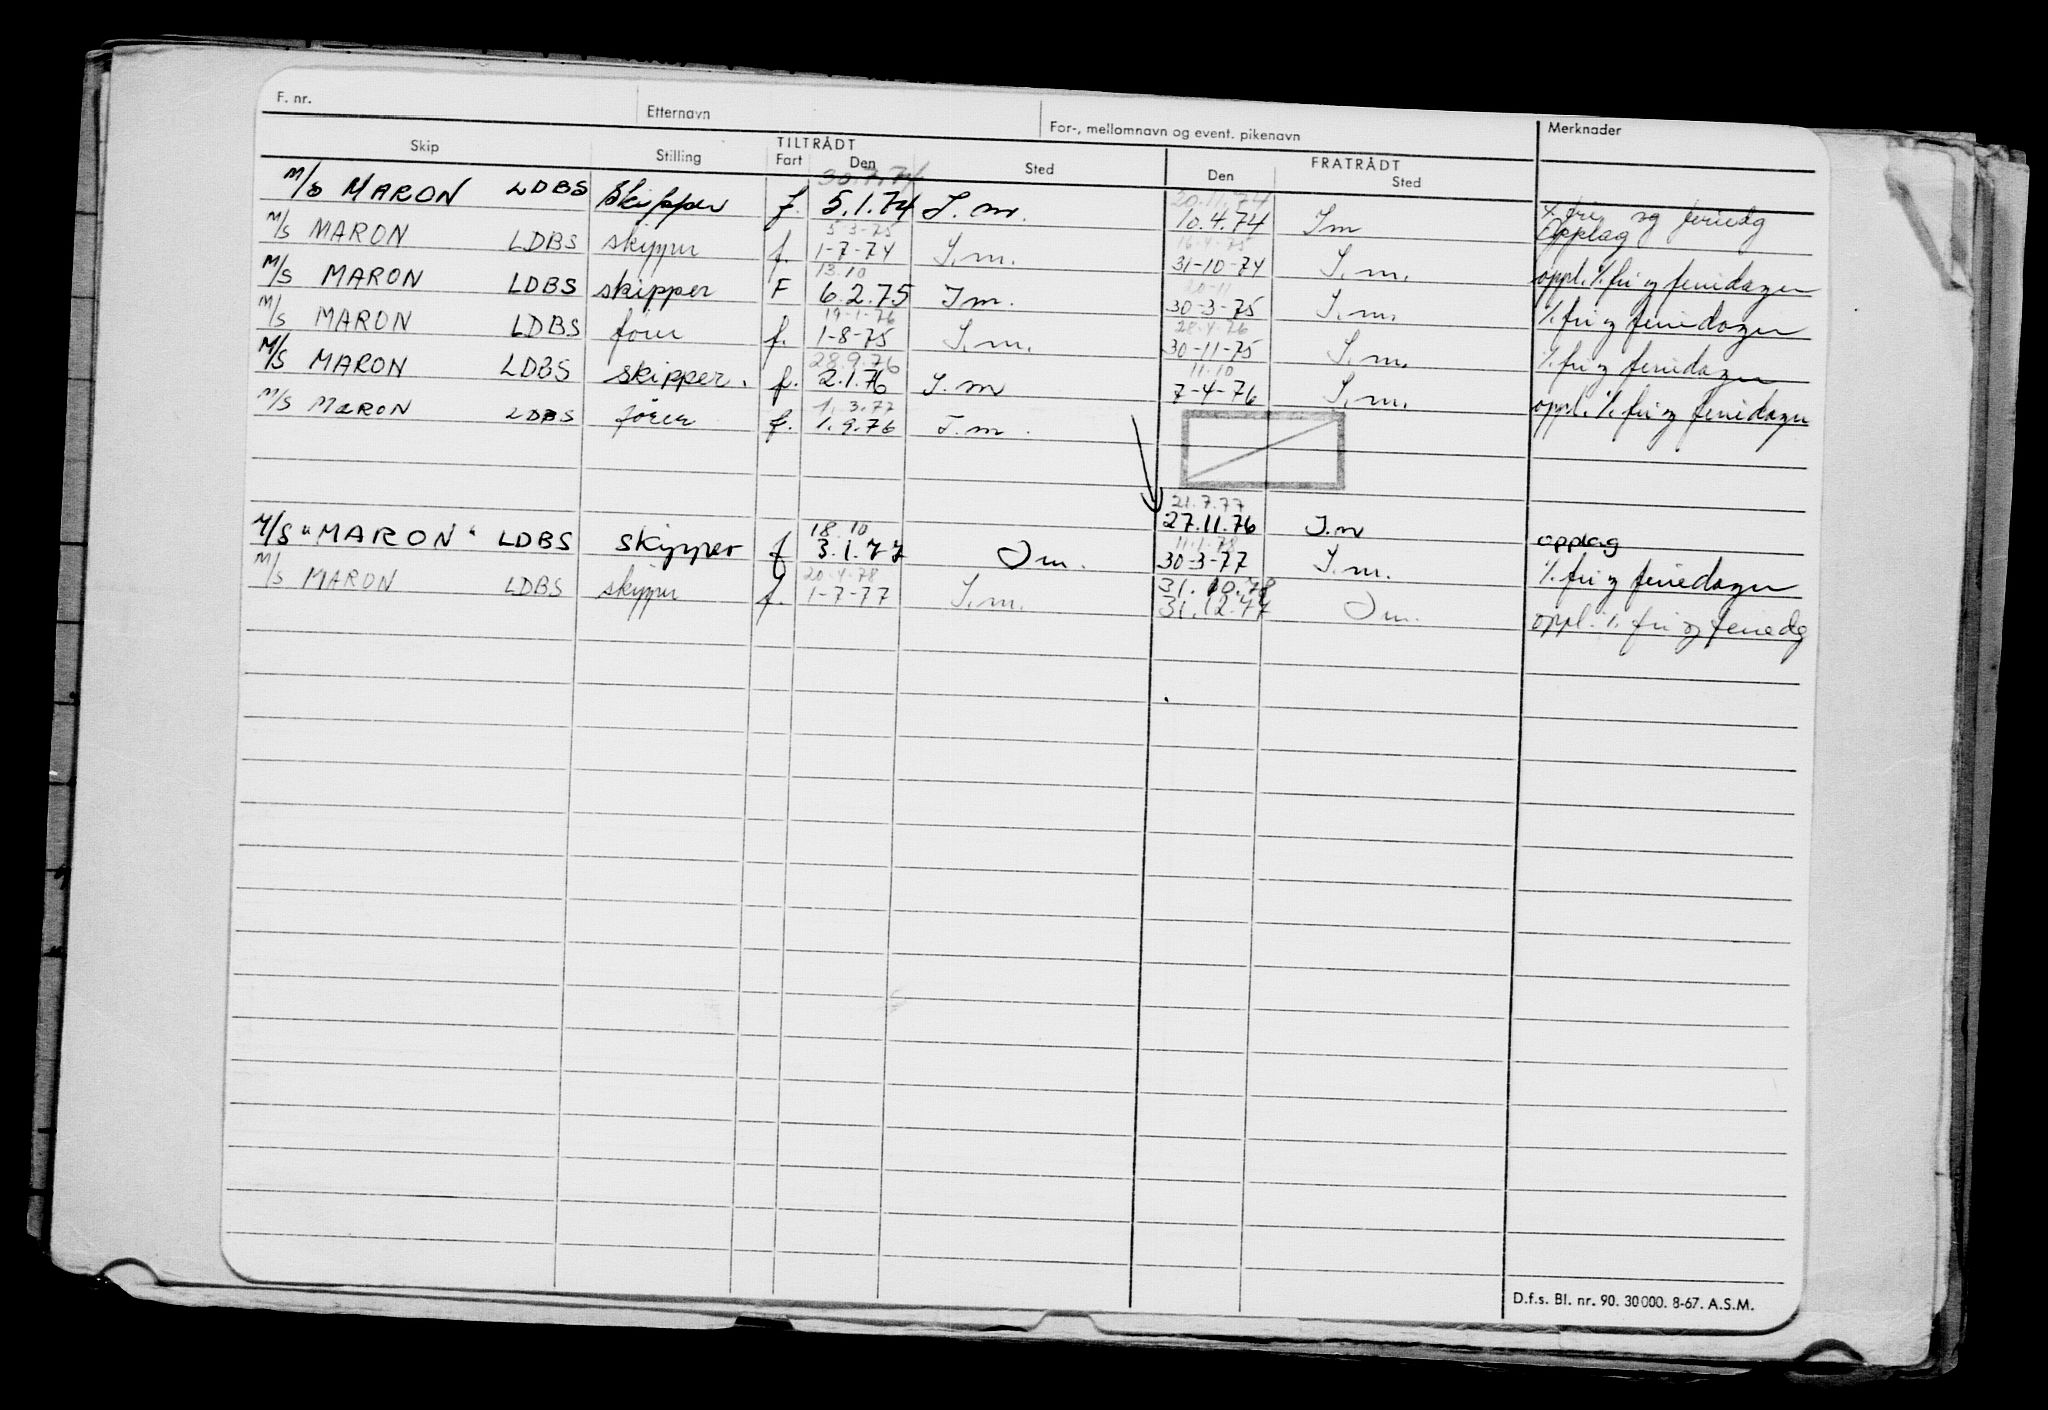 F. nr. Etternavn For-, mellomnavn og event. pikenavn Merknader
Skip Stilling TILTRÅDT Fart Den Sted FRATRÅDT Den Sted
30.7.74 20.11.74 % fri og feriedg
M/S MARON LDBS Skipper f. 5.1.74 I.m. 10.4.74 Im Opplag
5-3-75 16-4-75
M/S MARON LDBS skipper f. 1-7-74 I.m. 31-10-74 I.m. oppl. % fri og feriedager
13.10 20-11
M/S MARON LDBS skipper F 6.2.75 Im. 30-3-75 I.m. % fri og feriedager
19-1-76 28.4.76
M/S MARON LDBS fører f. 1-8-75 I.m. 30-11-75 I.m. % fri og feriedager
28.9.76 11.10
M/S MARON LDBS skipper. f. 2.1.76 I.m 7-4-76 I.m. oppl. % fri og feriedager
1.3.77
M/S MARON LDBS fører f. 1.9.76 I.m.
21.7.77
27.11.76 I.m opplag
18.10 11.1.78
M/S "MARON" LDBS skipper f 3.1.77 Im. 30-3-77 I.m. % fri og feriedager
20-4-78 31.10.78
M/S MARON LDBS skipper f. 1-7-77 I.m. 31.12.77 Im. oppl. % fri og feriedg
D.f.s. Bl. nr. 90. 30000. 8-67. A.S.M.